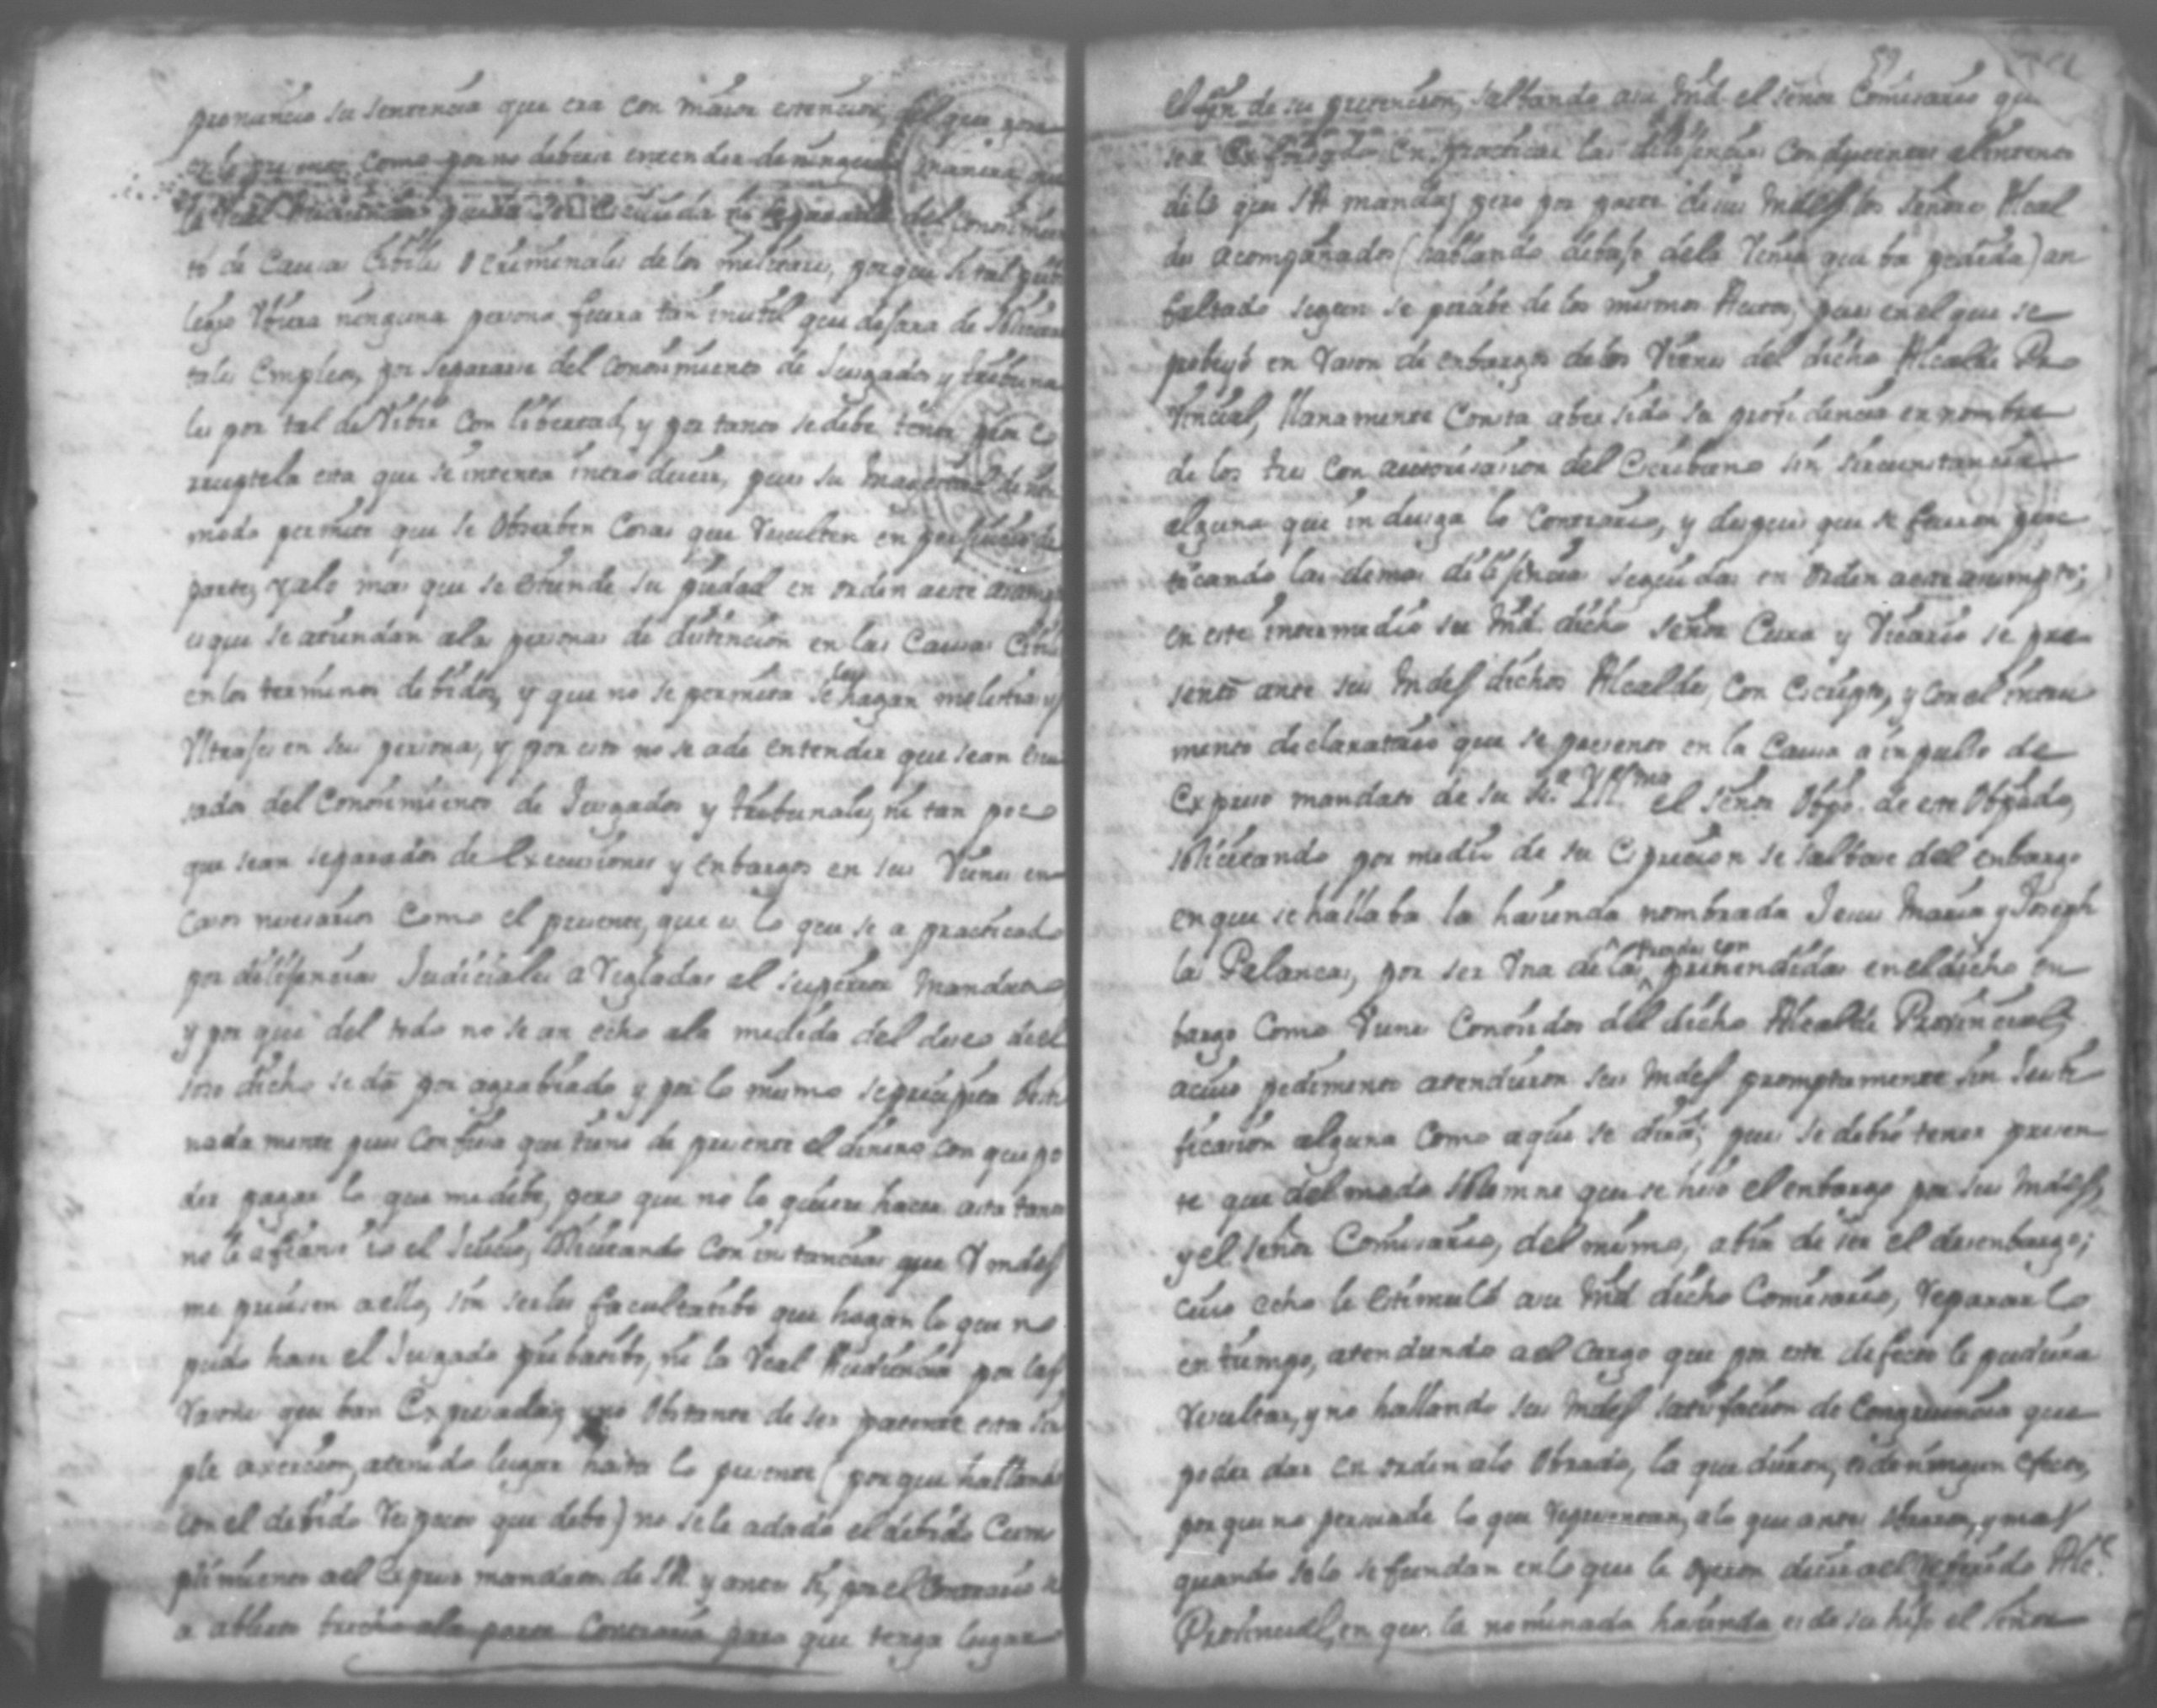 pronunció su sentencia que era con maior estención, del que
en lo presente como por no deberse entender de ninguna manera que
la Real Audiencia pueda ser excluida ni separada del conosimien
to de causas sibiles o criminales de los militares, porque si tal pribi
legio Vbiera ninguna persona fuera tan inutil que dejara de solicitar
tales empleos, por separarse del conosimiento de Jusgados y tribuna
les por tal de Vibir con libertad, y por tanto se debe tener por co
rruptela esta que se intenta introducir, pues su Magestad de nin
modo permite que se obserben cosas que Resulten en perjuisio de
partes, y a lo mas que se estiende su piedad en orden a este asump
es que se atiendan a la personas de distención en las causas Cibiles
en los terminos debidos, y que no se permita se les hagan molestias y
Vltrajes en sus personas, y por esto no se a de entender que sean escu
sados del Conosimiento de Jusgados y tribunales, ni tan poco
que sean separados de Execusiones y enbargos en sus Vienes en
casos nesesarios como el presente, que es lo que se a practicado
por dilijencias Judiciales a Regladas al superior mandato
y por que del todo no se an echo a la medida del deseo de el
suso dicho se dá por agrabiado y por lo mismo se presipita obsti
nadamente pues confiesa que tiene de presente el dinero con que po
der pagar lo que me debe, pero que no lo quiere hacer asta tanto
no le afianse io el Juicio, solicitando con instancias que Vmdes
me presisen a ello, sin serles facultatibo que hagan lo que no
pudo haser el Jusgado pribatibo, ni la Real Audiencia por las
Rasones que ban Expresadas, y no obstante de ser patente esta sim
ple axercion, a tenido lugar hasta lo presente (porque hablando
con el debido Respecto que debo) no se le a dado el debido Cum
plimiento a el expreso mandato de S.A. y antes si, por el contrario se
a abierto brecha a la parte Contraria para que tenga lugar
el fin de su pretencion, salbando a su Md. el señor Comisario que
sea esforsado en practicar las dilijencias condusentes al intento
de lo que S.A. manda; pero por parte de sus Mdes los señores Alcal
des acompañados (hablando debajo de la Venia que ba pedida) an
faltado segun se persibe de los mismos Autos; pues en el que se
probeyó en Rason de enbargos de los Vienes del dicho Alcalde Pro
Vincial, llanamente consta aber sido su providencia en nombre
de los tres con autorisasion del Escribano sin sircunstancia
alguna que indusga lo contrario, y despues que se fueron prac
ticando las demas dilijencias seguidas en orden a este asumpto;
en este intermedio su Md. dicho señor Cura y Vicario se pre
sentó ante sus Mdes dichos Alcaldes, con escripto, y con el instru
mento declaratorio que se presento en la Causa a inpulso de
Expreso mandato de su Sa. Yllma. el señor Obpo. de este Obpado,
solicitando por medio de su Expresion se salbase del enbargo
en que se hallaba la hasienda nombrada Jesus Maria y Joseph
las Palancas, por ser Vna de las ynclusas con prehendidas en el dicho en
bargo como Vienes conosidos del dicho Alcalde Provincial;
a cuio pedimento atendieron sus Mdes promptamente sin Justi
ficasion alguna como aqui se dirá; pues se debio tener presen
te que del modo solemne que se hiso el enbargo por sus Mdes,
y el señor Comisario, del mismo, abia de ser el desenbargo;
cuio echo le estimuló a su Md. dicho Comisario, Repararlo
en tiempo, atendiendo a el cargo que por este defecto le pudiera
Resultar, y no hallando sus Mdes satisfacion de Congruencia que
poder dar en orden a lo Obrado, la que dieron, es de ningun efecto,
por que no persuade lo que Representan, a lo que antes obraron, y mas
quando solo se fundan en lo que le oyeron decir a el referido Alce.
Provincial, en que la nominada hasienda es de su hijo el señor